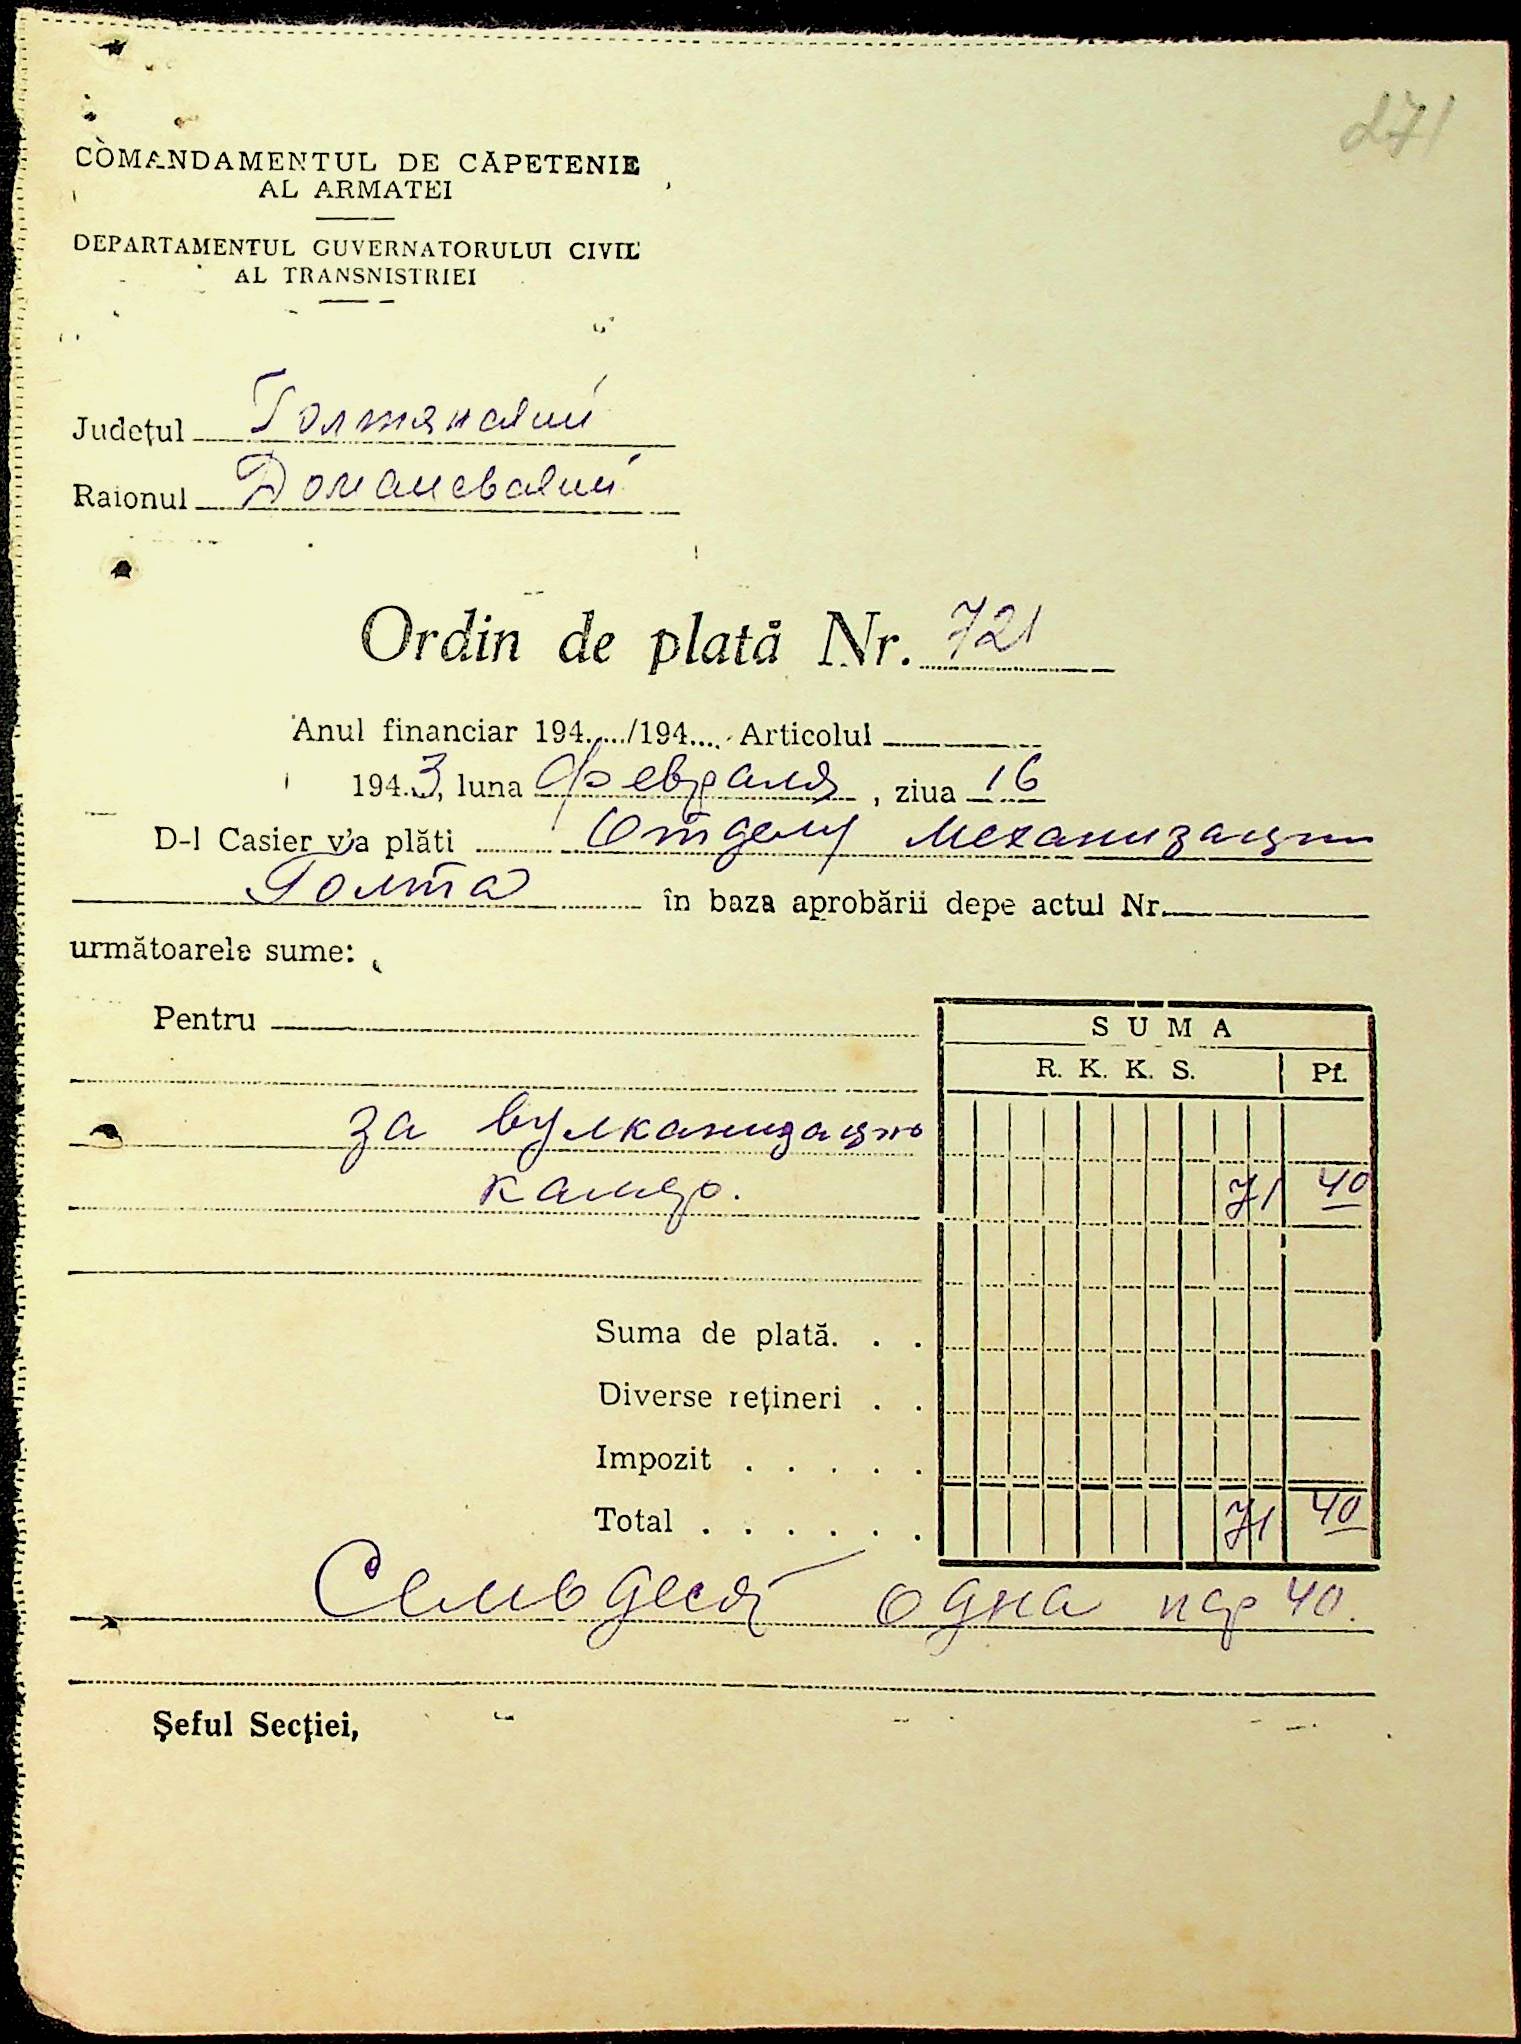 271
COMANDAMENTUL DE CĂPETENIE
AL ARMATEI
DEPARTAMENTUL GUVERNATORULUI CIVIL
AL TRANSNISTRIEI
Județul Голтянский
Raionul Доманевский
Ordin de plată Nr. 721
Anul financiar 194..../194.... Articolul
194.3, luna февраля, ziua 16
D-l Casier v'a plăti Отделу механизации
Голта în baza aprobării depe actul Nr.
următoarele sume:
Pentru
SUMA
R. K. K. S. Pf.
за вулканизацию
камер. 71 40
Suma de plată. . .
Diverse rețineri . .
Impozit . . . . .
Total . . . . . . 71 40
Семьдесят одна мар 40.
Șeful Secției,